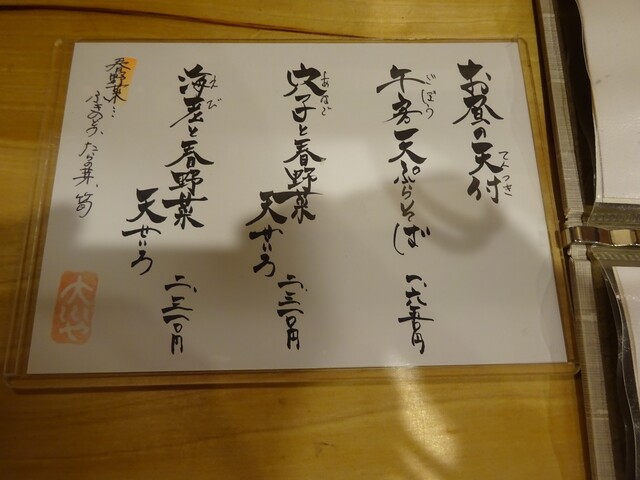 お昼の天付
てんつき
牛蒡天ぷらそば 一、六五〇円
ごぼう
穴子と春野菜
あなご
天せいろ 二、三一〇円
海老と春野菜
えび
天せいろ 二、三一〇円
春野菜…
ふきのとう、たらの芽、筍
大川や